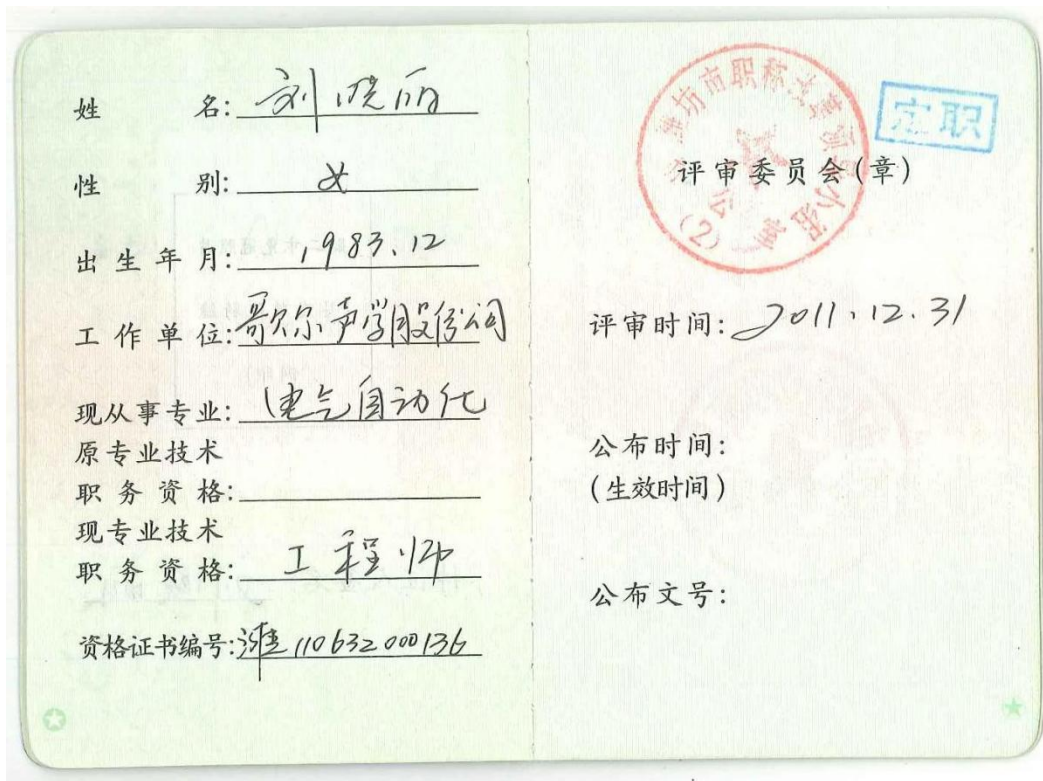 姓 名: 刘晓丽
性 别: 女
出生年月: 1983.12
工作单位: 歌尔声学股份公司
现从事专业: 电气自动化
原专业技术
职务资格:
现专业技术
职务资格: 工程师
资格证书编号: 潍110632000136
潍坊市职称改革领导小组
办公室
(2)
定职
评审委员会(章)
评审时间: 2011.12.31
公布时间:
(生效时间)
公布文号: